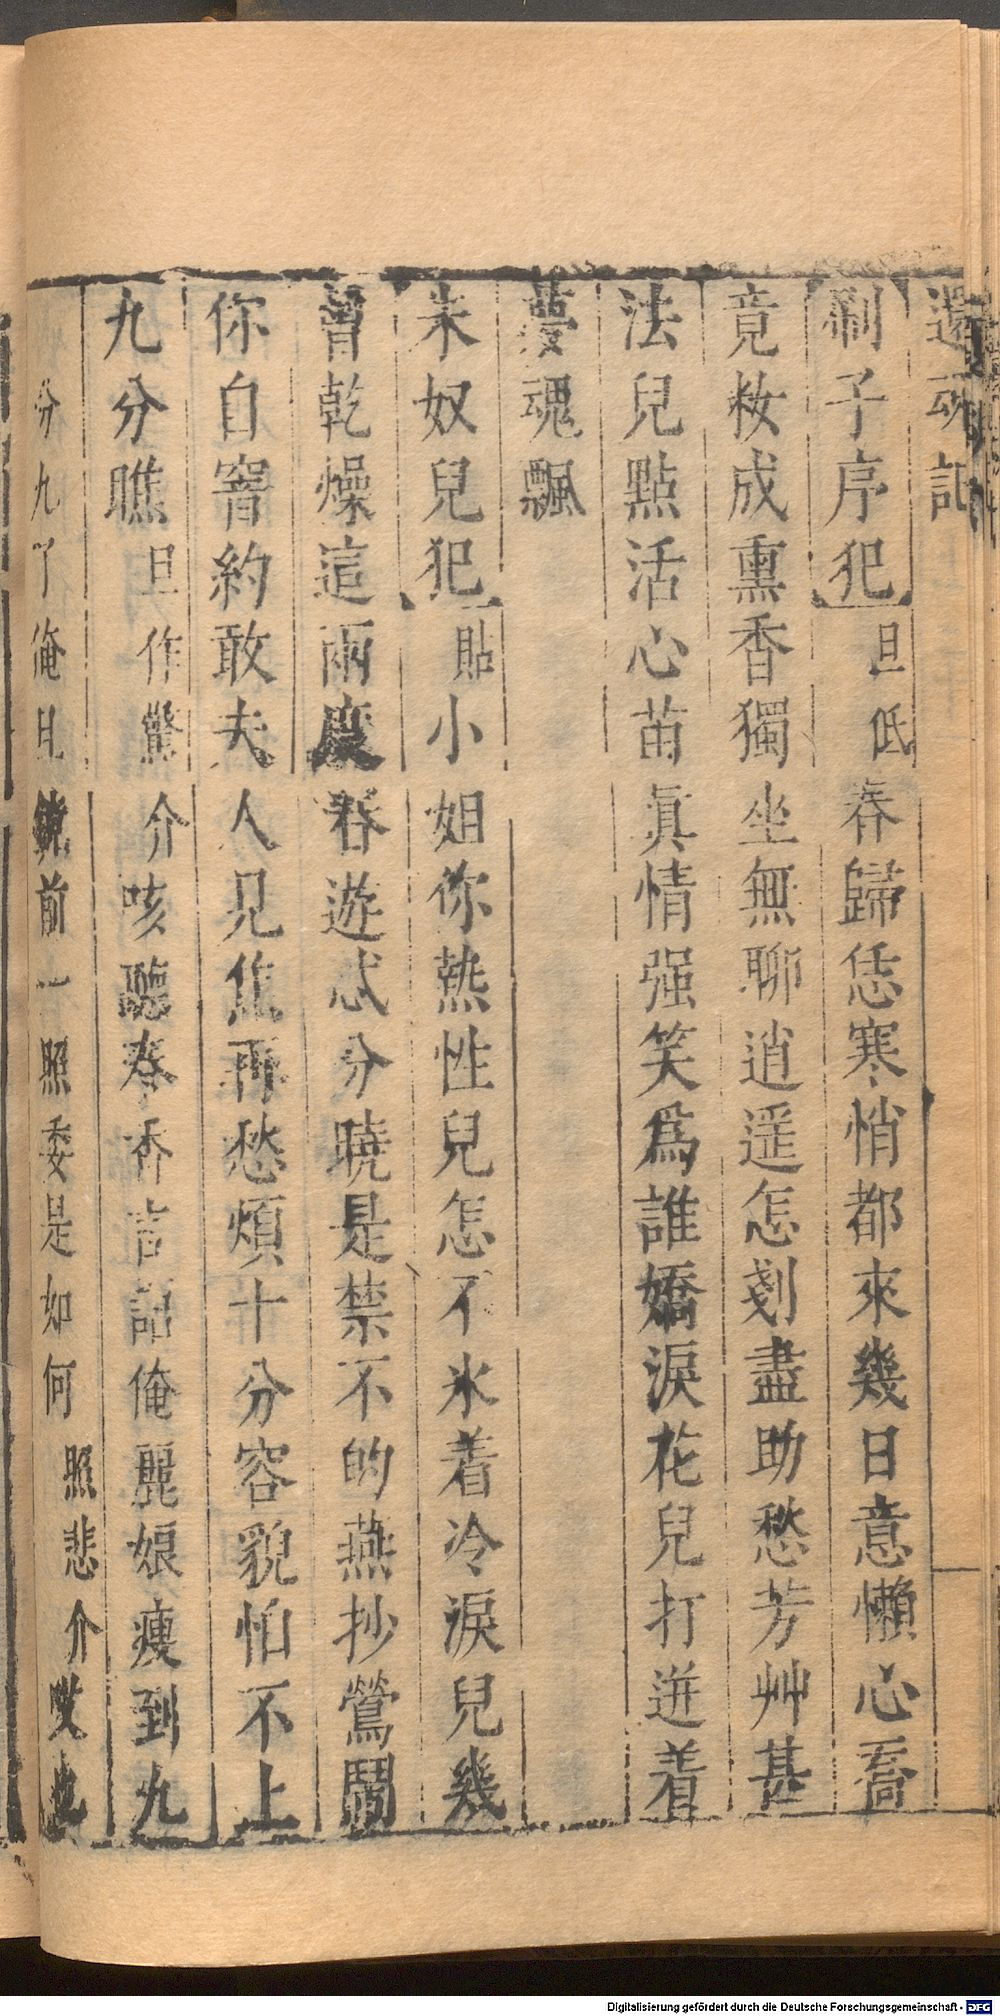 還魂記
刷子序犯 旦低 春歸恁寒悄都來幾日意懶心喬
竟妝成熏香獨坐無聊逍遥怎剗盡助愁芳艸甚
法兒點活心苗眞情强笑爲誰嬌淚花兒打迸着
夢魂飄
朱奴兒犯 貼 小姐你熱性兒怎不氷着冷淚兒幾
曾乾燥這兩度春遊忒分曉是禁不的燕抄鶯鬧
你自窨約敢夫人見焦再愁煩十分容貌怕不上
九分瞧 旦作驚介 咳聽春香言話俺麗娘瘦到九
分九了俺且鏡前一照委是如何 照悲介 哎也
Digitalisierung gefördert durch die Deutsche Forschungsgemeinschaft - DFG